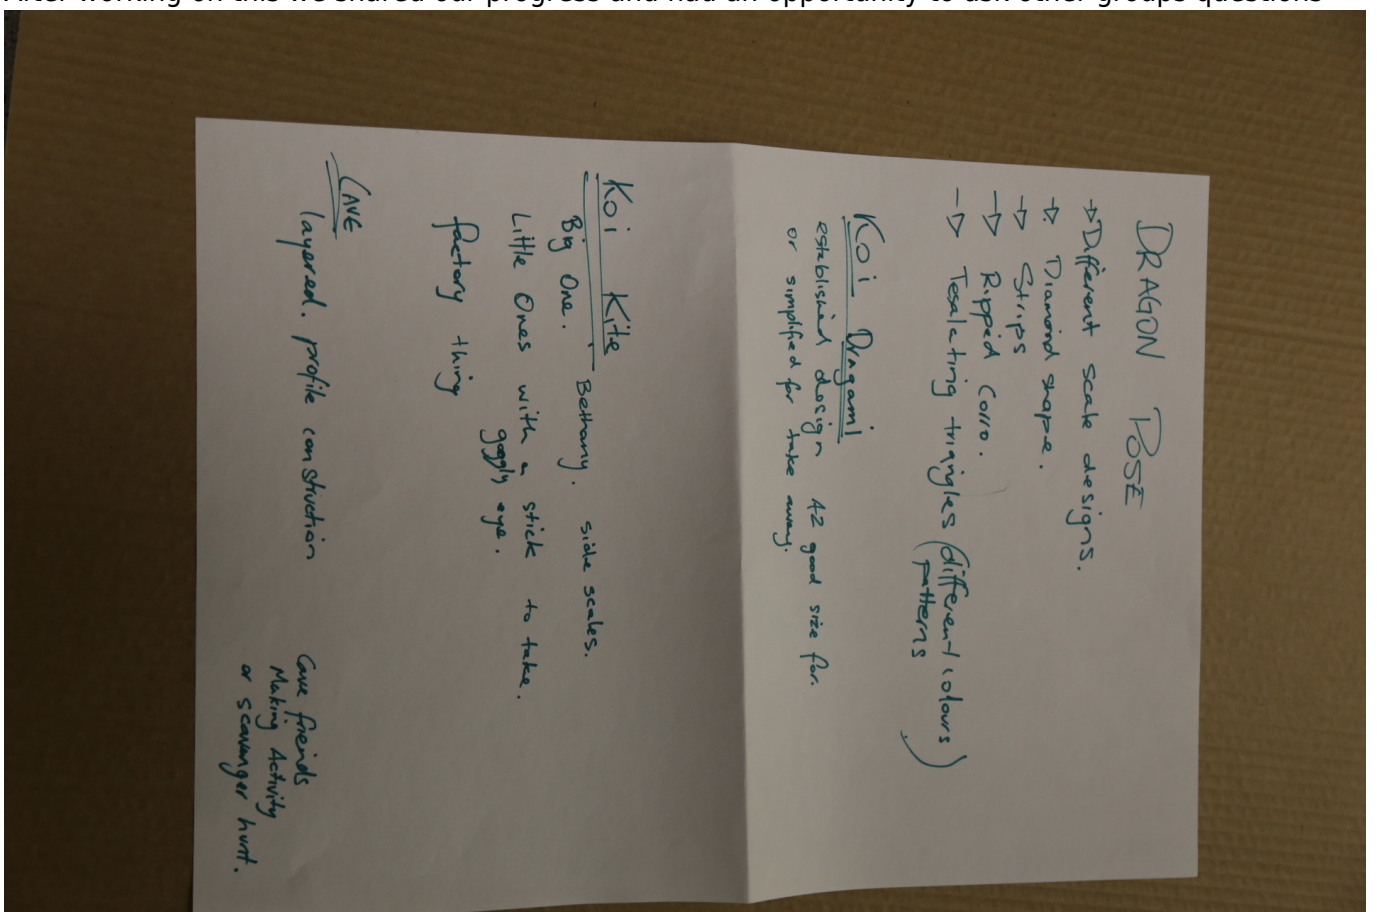 After working on this we shared our progress and had an opportunity to ask other groups questions
DRAGON POSE
→ Different scale designs.
→ Diamond shape.
→ Strips
→ Ripped Corro.
→ Tesalating triangles (different colours
patterns)
Koi Dragami
established design A2 good size for.
or simplified for take away.
Koi Kite
Big One. Bethany. side scales.
Little Ones with a stick to take.
goggly eye.
factory thing
CAVE
layered. profile constiuction
Cave friends
Making Activity
or scavanger hunt.